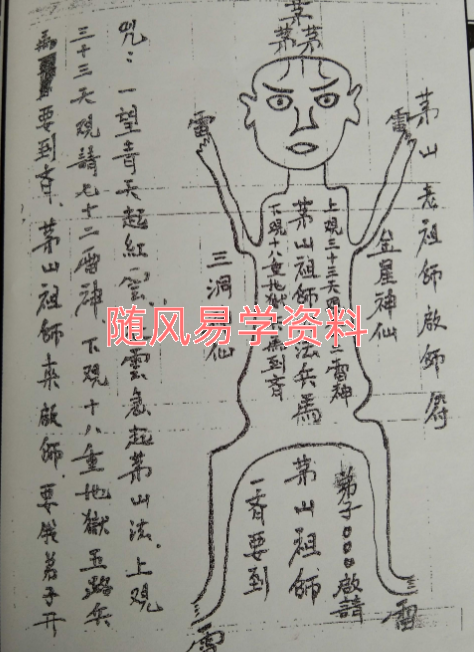 茅山老祖師啟師符
茅
茅茅
雷
雷
金星神仙
上覌三十三天二雷神
茅山祖師法兵馬
下覌十八重地獄馬到斉
三洞仙
弟子ooo啟請
茅山祖師
一斉要到
雷
雷
咒：一望青天起紅雲、雲急起茅山法、上覌
三十三天覌請七十二雷神、下覌十八重地獄五路兵
馬要到斉、茅山祖師来啟師、要弟子开
随风易学资料